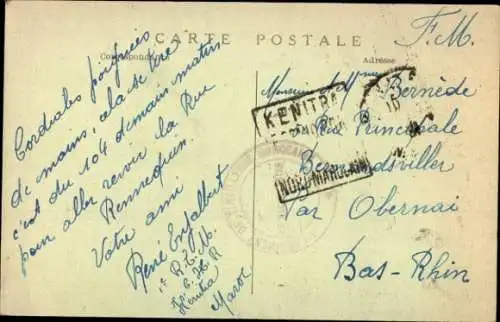 CARTE POSTALE
Correspondance
Adresse
F. M.
Cordiales poignées
de mains, à la
c'est du 104 demain matin
pour aller revoir la Rue
Rennequin.
Votre ami
René Enjalbert
R. C. M.
C. H. R
Kénitra
Maroc
Monsieur et Mme Bernède
Rue Principale
Bernardsville
Par Obernai
Bas-Rhin
KENITRA
(NORD MAROCAIN)